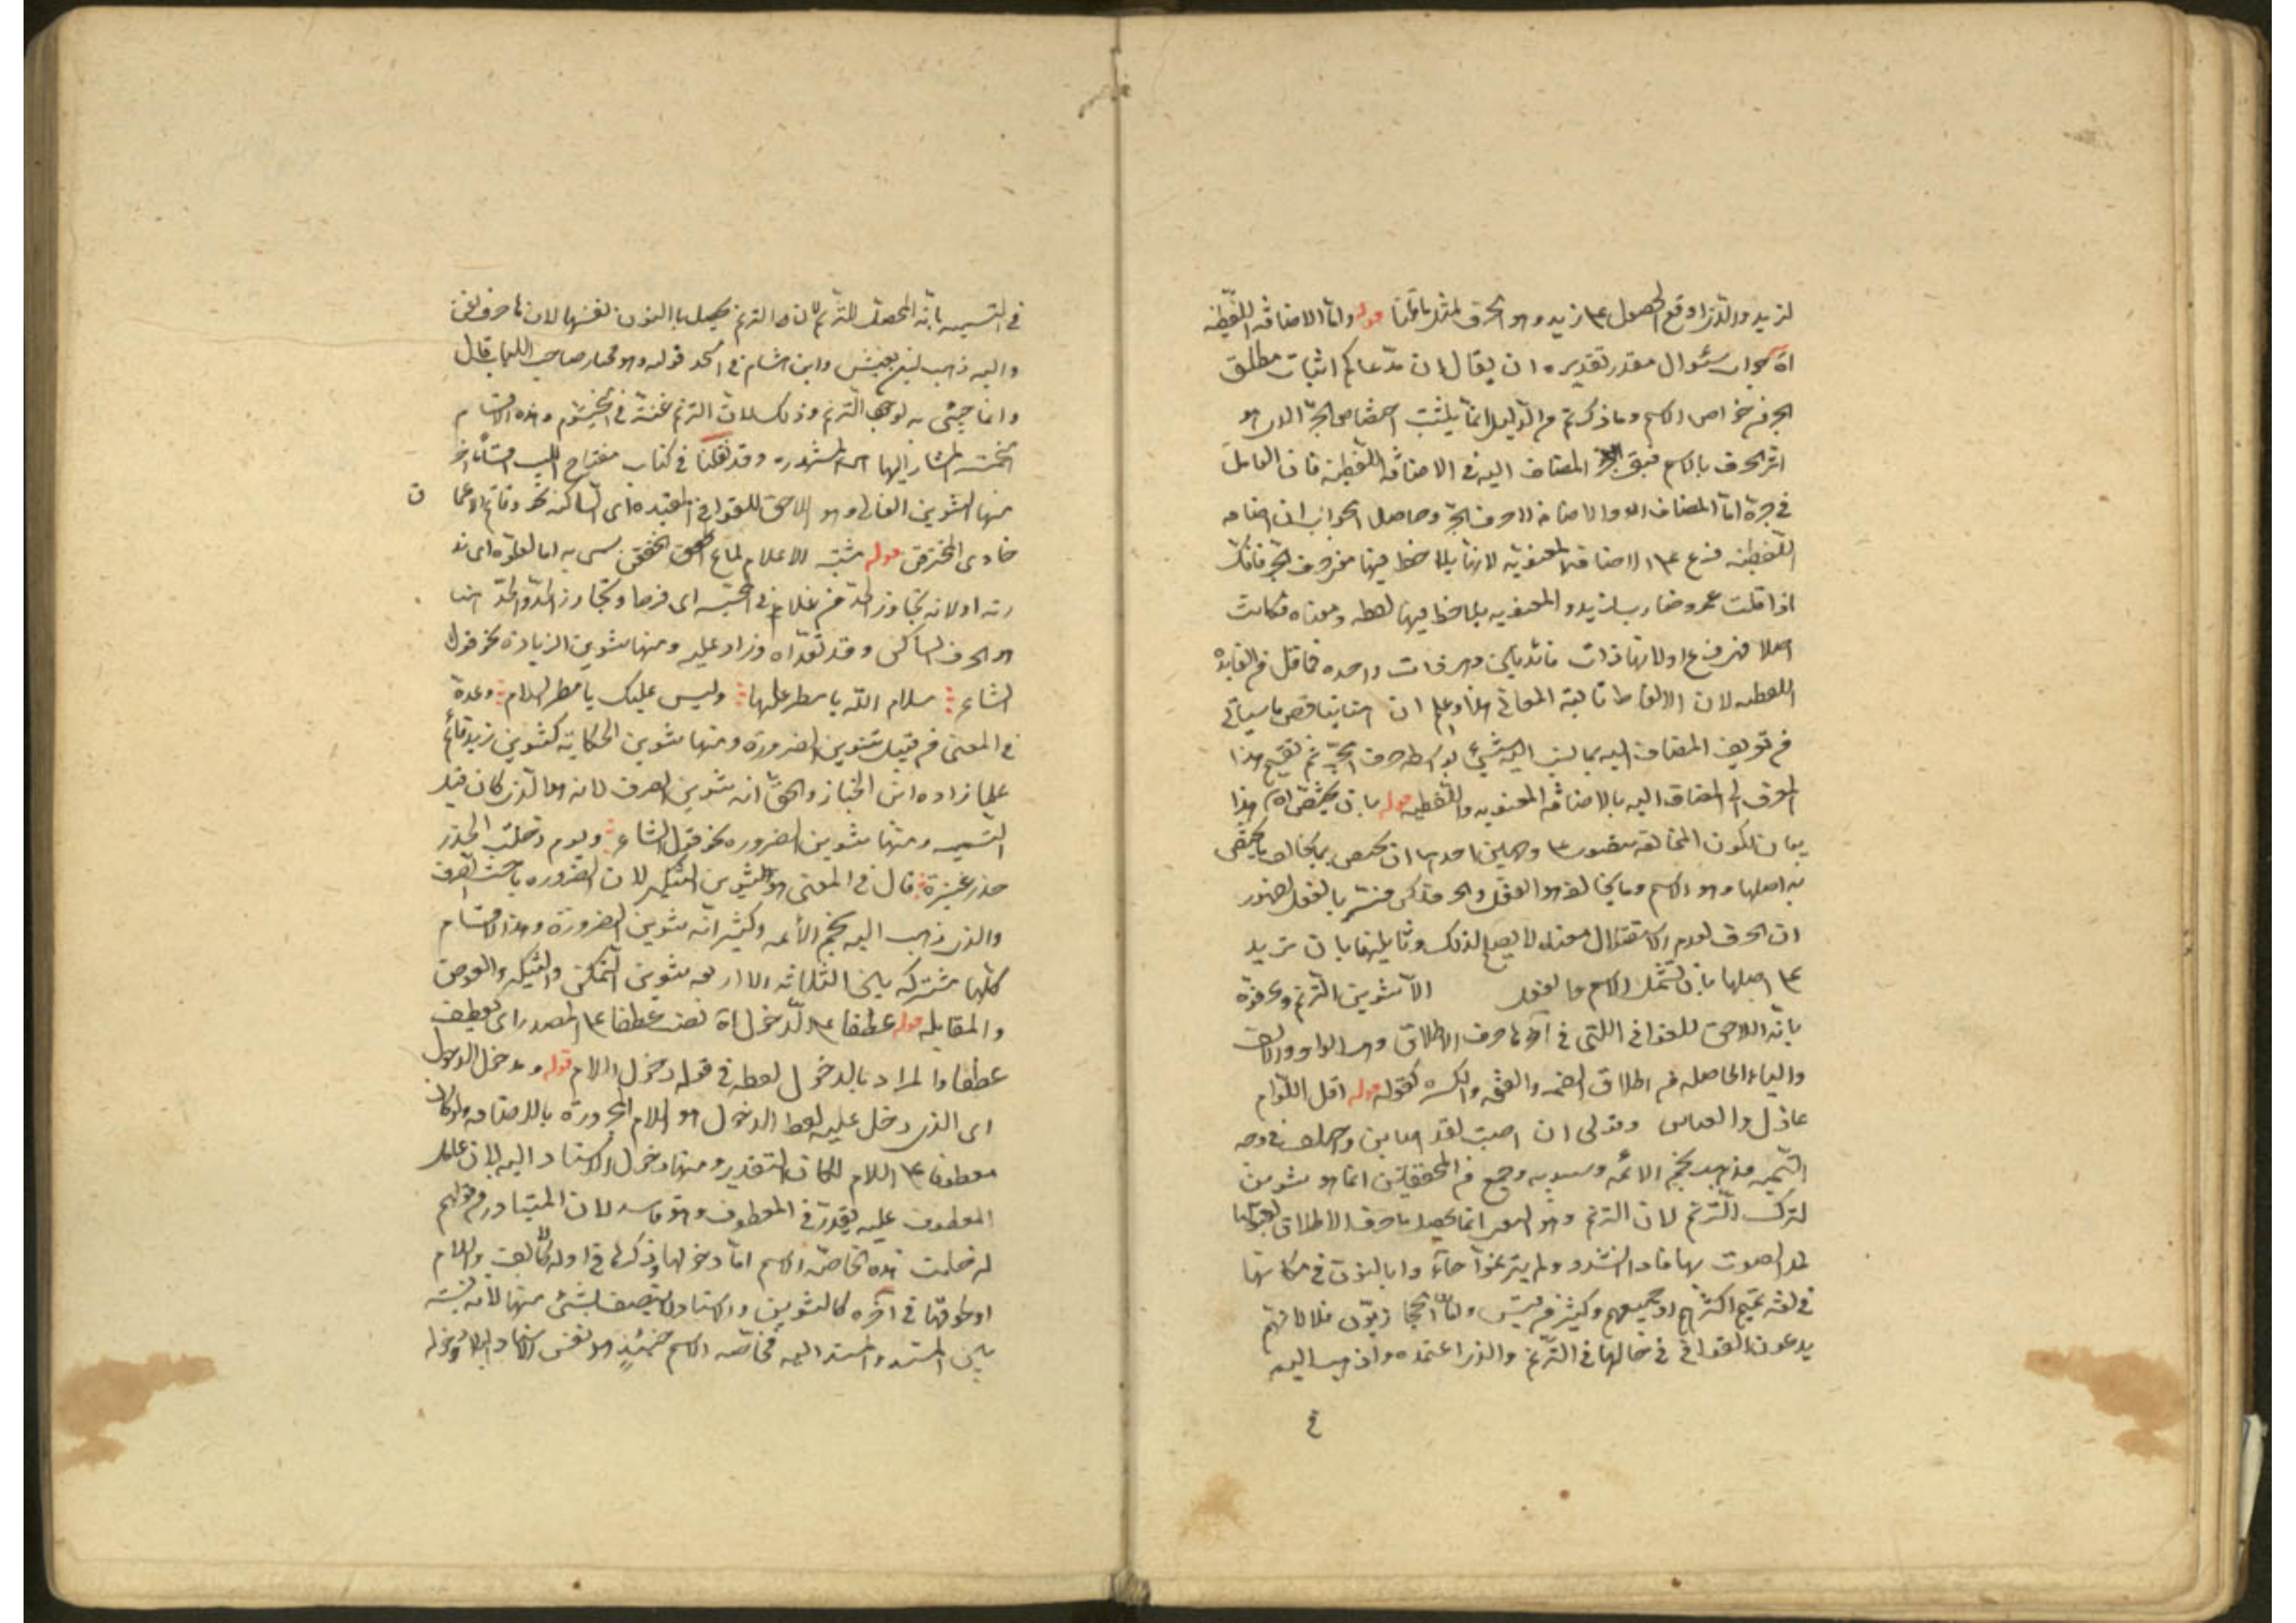 لزيد والذي اوقع الحصول على زيد وهو الحرف لمثل ما قلنا قوله واما الاضافة اللفظية
اه جواب سئوال مقدر تقديره ان يقال ان مدعاكم اثبات مطلق
الجر من خواص الاسم وما ذكرتم من الدليل انما يثبت اختصاص الجر الذي هو
اثر الحرف بالاسم فبقي المضاف اليه في الاضافة اللفظية فان العامل
في جره اما المضاف او الاضافة لا حرف الجر وحاصل الجواب ان اضافة
اللفظية فرع على الاضافة المعنوية لانها يلاحظ فيها حرف الجر فانك
اذا قلت عمرو ضارب لزيد والمعنوية يلاحظ فيها لفظه ومعناه فكانت
اصلا من فرع اولانها ذات فائدتين وهي ذات واحده فاقل من الفايدة
اللفظية لان الالفاظ تابعة المعاني هذا واعلم ان هنا يناقض ما سياتي
من تعريف المضاف اليه بما نسب اليه شيئ بواسطة حرف الجر ثم تقسيم هذا
الحرف الى المضاف اليه بالاضافة المعنوية واللفظية قوله بان يختص اه هذا
بيان لكون المخالفة متصور على وجهين احدهما ان يختص بما يخالف ما يختص
به اصلها وهو الاسم وما يخالفه هو الفعل والحرف لكن فسر بالفعل لظهور
ان الحرف لعدم الاستقلال معناه لا يصلح لذلك وثانيهما بان تزيد
على اصلها بان تشمل الاسم والفعل الا تنوين الترنم وعرفوه
بانه اللاحق للقوافي اللتي في آخرها حرف الاطلاق وهي الواو والالف
والياء الحاصلة من اطلاق الضمة والفتحة والكسره كقوله قوله اقلي اللوم
عاذل والعتابن وقولي ان اصبت لقد اصابن واختلف في وجه
التسمية فذهب نجم الائمة وسيبويه وجمع من المحققين انما هو تنوين
لترك الترنم لان الترنم وهو انما يحصل باحرف الاطلاق لقبولها
لمد الصوت بها فاذا انشدوا ولم يترنموا جاؤا بالنون في مكانها
في لغة تميم اكثرهم او جميعهم وكثير من قيس واما الحجازيون فلا لانهم
يدعون القوافي في حالها في الترنم والذي اعتمده واذهب اليه
في
في التسمية بانه المحصل للترنم لان الترنم يحصل بالنون نفسها لانها حرف اغن
واليه ذهب ابن يعيش وابن هشام في احد قوليه وهو مختار صاحب اللباب قال
وانما جيئ به لوجود الترنم وذلك لان الترنم غنة في الخيشوم وهذه الاقسام
الخمسة المشار اليها هي المشهورة وقد نقلنا في كتاب مفتاح اللب اقساما اخر
منها التنوين الغالي وهو اللاحق للقوافي المقيدة اي الساكنة نحو وقاتم الاعماق
خاوي المخترقن قوله مشتبه الاعلام لماع الخفقن سمي به اما لغلوه اي ند
رته اولانه تجاوز الحد من غلا في اي فرضا وتجاوز الحد والحد هنا
هو الحرف الساكن وقد تعداه وزاد عليه ومنها تنوين الزيادة نحو قول
الشاعر سلام الله يا مطر عليها وليس عليك يا مطر السلام وعده
في المغني من قبيل تنوين الضرورة ومنها تنوين الحكاية كتنوين زيد قائم
علما زاده ابن الخباز والحق انه تنوين الصرف لانه هو الذي كان قبل
التسمية ومنها تنوين الضروره نحو قول الشاعر ويوم دخلت الخدر
خدر عنيزة قال في المغني هو التنوين التمكين لان الضروره باحت الصرف
والذي ذهب اليه نجم الائمه وكثير انه تنوين الضرورة وهذه الاقسام
كلها مشتركة بين الثلاثة الا اربعة تنوين التمكن والتنكير والعوض
والمقابلة قوله عطفا على الدخول اه نصب عطفا على المصدر اي يعطف
عطفا والمراد بالدخول لفظه في قوله دخول اللام قوله ومدخول الدخول
اي الذي دخل عليه لفظ الدخول هو اللام المجرورة بالاضافه ولو كان
معطوفا على اللام لكان التقدير ومنها دخول الاسناد اليه لان عامل
المعطوف عليه يقدر في المعطوف وهو فاسد لان المتبادر من قولهم
دخلت هذه الخاصة الاسم اما دخولها وذكرها في اوله كالف واللام
او لحوقها في آخره كالتنوين والاسناد لا يتصف بشئ منهما لانه نسبة
بين المسند والمسند اليه فخاصة الاسم حينئذ هو نفس الاسناد اليه لا دخوله